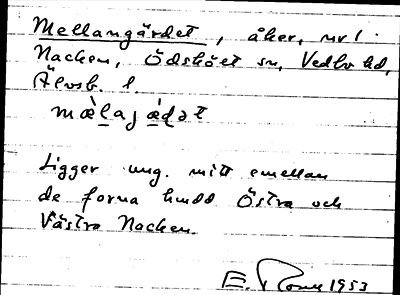 Mellangärdet, åker, nr 1
Nacken, Ödskölt sn, Vedbo hd,
Älvsb. l
mæ̀laj æ̀ḍət
Ligger ung. mitt emellan
de forna hmdd Östra och
Västra Nacken.
E. 1953